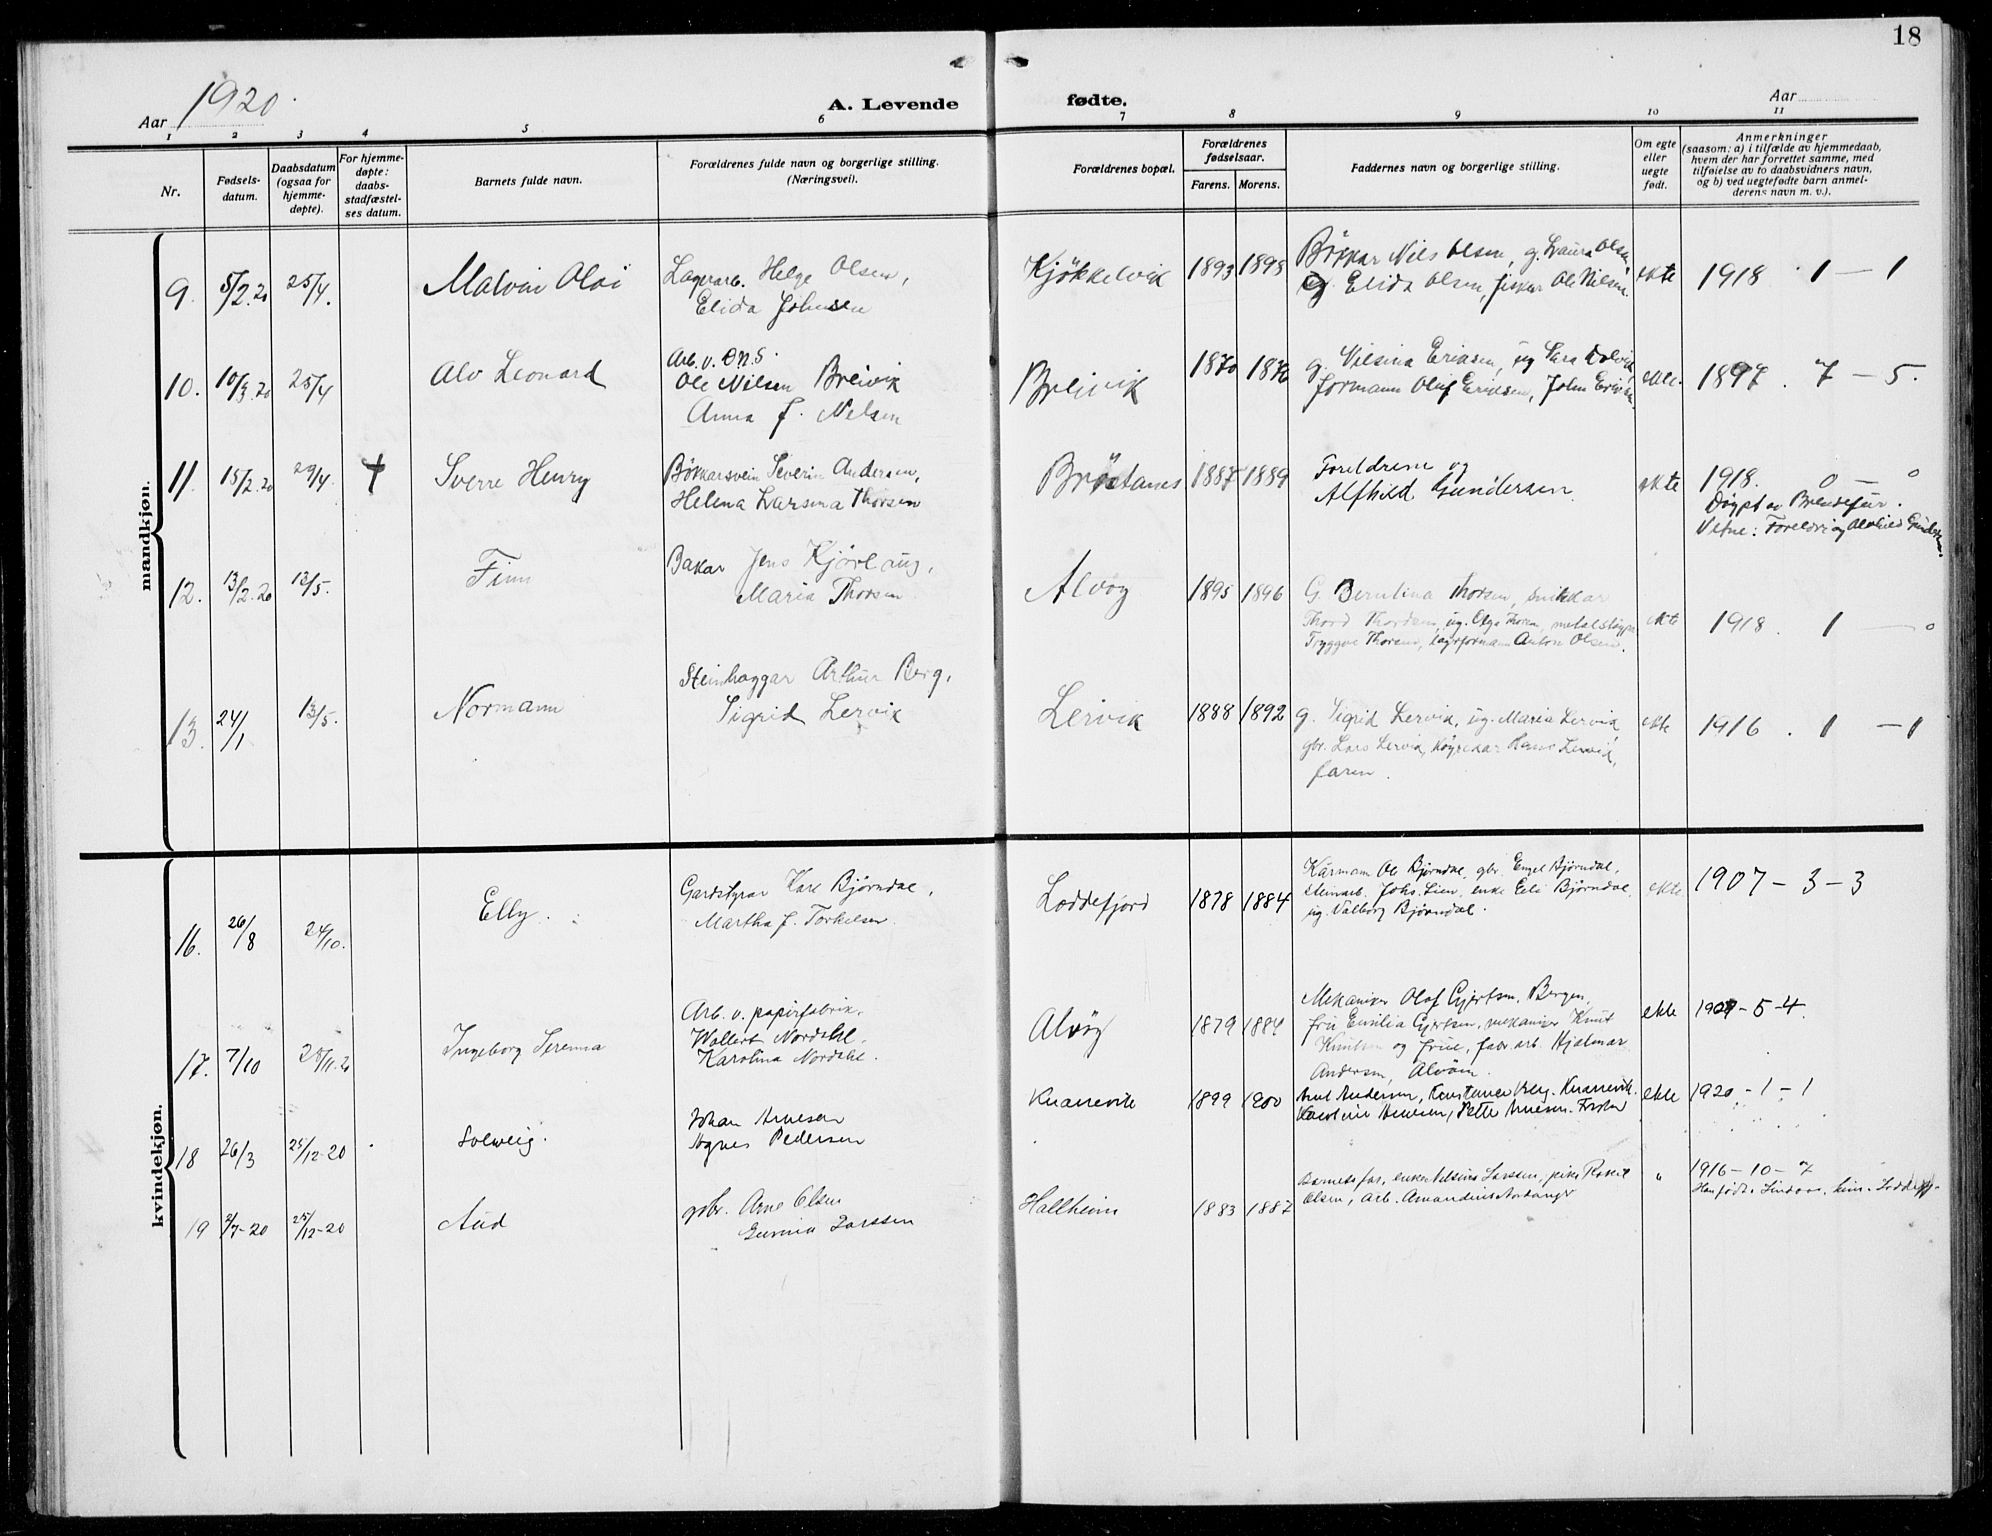 18
Aar 1920.
A. Levende fødte.
Aar
1 2 3 4 5 6 7 8 9 10 11
Nr.
Fødsels-
datum.
Daabsdatum
(ogsaa for
hjemme-
døpte).
For hjemme-
døpte:
daabs-
stadfæstel-
ses datum.
Barnets fulde navn.
Forældrenes fulde navn og borgerlige stilling.
(Næringsvei).
Forældrenes bopæl.
Forældrenes
fødselsaar.
Farens. Morens.
Faddernes navn og borgerlige stilling.
Om egte
eller
uegte
født.
Anmerkninger
(saasom: a) i tilfælde av hjemmedaab,
hvem der har forrettet samme, med
tilføielse av to daabsvidners navn,
og b) ved uegtefødte barn anmel-
derens navn m. v.).
mandkjøn.
9. 5/2.20 25/4. Malvin Olai
Lagerarb. Helge Olsen,
Elida Johnsen
Kjøkkelvik 1893 1898
Bøkkar Nils Olsen, g. Laura Olsen,
Elida Olsen, fiskar Ole Nilsen.
ekte 1918. 1 — 1
10. 10/3.20 25/4 Alv Leonard
Arb. v.
Ole Nilsen Breivik
Anna J. Nelsen
Breivik 1870 1876
g. Nilsina Eriksen, ug Sara
formann Oluf Eriksen, John Eriksen.
ekte. 1897. 7 — 5.
11. 15/2.20 29/4. † Sverre Henry
Bøkkarsvein Severin Andersen,
Helena Larsina Thorsen
Brøstanes 1887 1889
Foreldrene og
Alfhild Gundersen.
ekte 1918. 0 — 0
Døypt av
Vitne: Foreldri og Alvhild
12. 13/2.20 13/5. Finn
Bakar Jens Kjørlaug,
Maria Thorsen
Alvøy 1895 1896
G. Berntina Thorsen, snikkar
Thord Thordsen, ug. Olga Thoren,
Tryggve Thorsen, lagrformann Anton Olsen.
ekte 1918. 1 — 0
13. 24/1 13/5. Normann
Steinhoggar Arthur Berg,
Sigrid Lervik
Lervik 1888 1892
g. Sigrid Lervik, ug. Maria Lervik
gbr. Lars Lervik, køyrekar Hans Lervik,
faren.
ekte 1916. 1 — 1
kvindekjøn.
16. 26/8 24/10. Elly.
Gardstyrar Karl Bjørndal,
Martha J. Torkelsen.
Loddefjord 1878 1884
Kármann Ole Bjørndal, gbr. Engel Bjørndal,
steinarb. Johs. Lien, enke Eli Bjørndal,
ug. Valborg Bjørndal.
ekte 1907 – 3 – 3
17. 7/10 28/11.20 Ingeborg Serenna
Arb. v. papirfabrik,
Wollert Nordahl,
Karolina Nordahl.
Alvøy 1879 1884
Mekaniker Olaf Gjertsen, Bergen,
fru Emilia Gjertsen, mekaniker Knut
Knutsen og frue, fabr. arb. Hjalmar
Andersen, Alvøen.
ekte 1907 – 5 – 4.
18 26/3 25/12-20 Solveig.
Johan Arnesen
Agnes Pedersen
Knarrevik 1899 1900
Andersen, Konstance Berg. Knarrevik.
ekte 1920 – 1 – 1
19 2/7-20 25/12-20 Aud
gbr. Arne Olsen
Larssen
Hallheim 1883 1887
Barnets far, enke Nilsine Larssen,
Olsen, arb.
" 1916 – 10 – 7